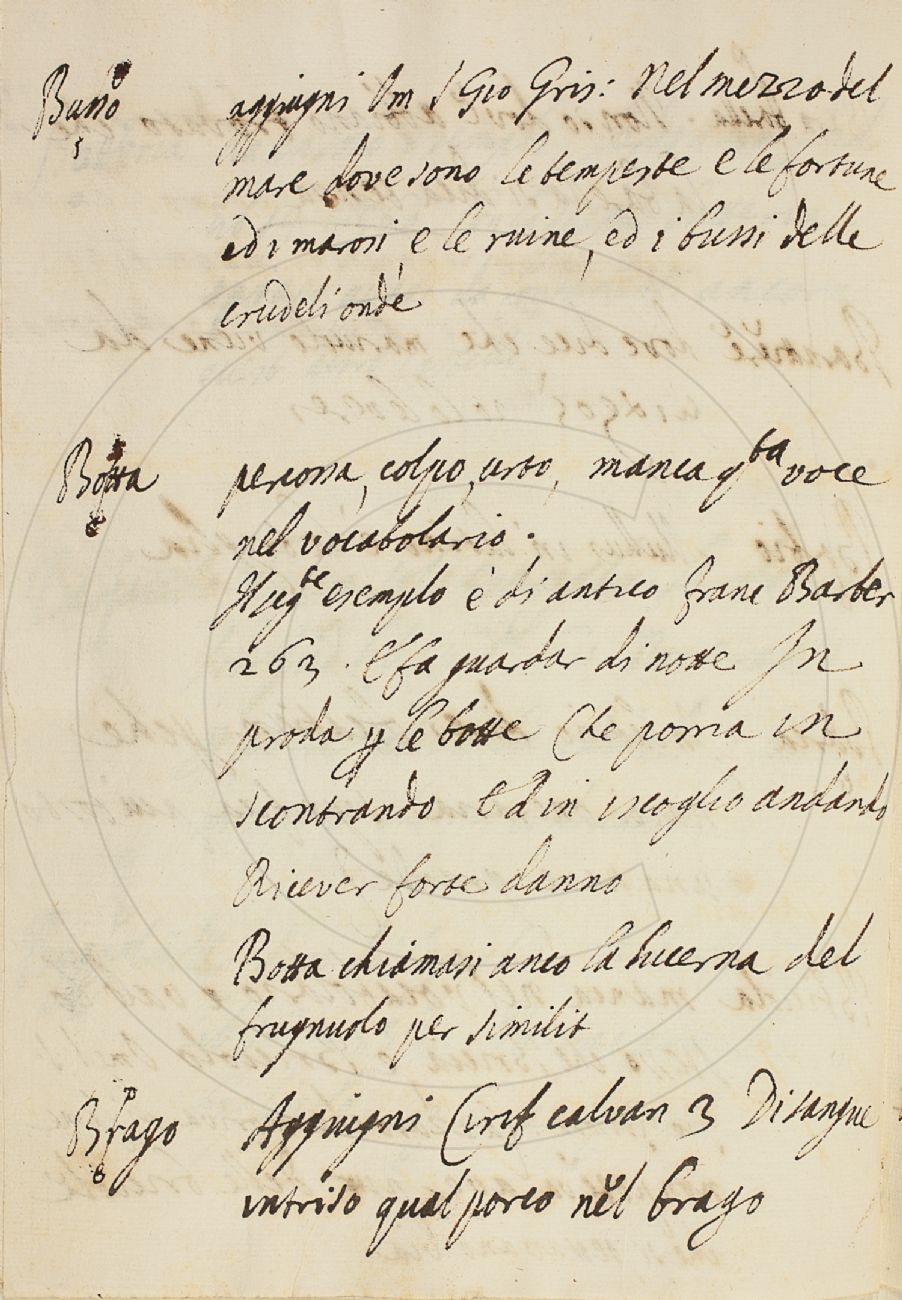 Busso aggiugni Om S Gio Gris: Nel mezzo del
mare dove sono le tempeste e le fortune
ed i marosi, e le ruine, ed i bussi delle
crudeli onde
Botta percossa, colpo, urto, manca qta voce
nel vocabolario.
Il segte esempio è di antico franc Barber
263. E fa guardar di notte In
proda p le botte Che porria in
scontrando E d in iscoglio andando
Ricever forte danno
Botta chiamasi anco la lucerna del
frugnuolo per similit
Brago Aggiugni Cirif calvan 3 Di sangue
intriso qual porco nel brago